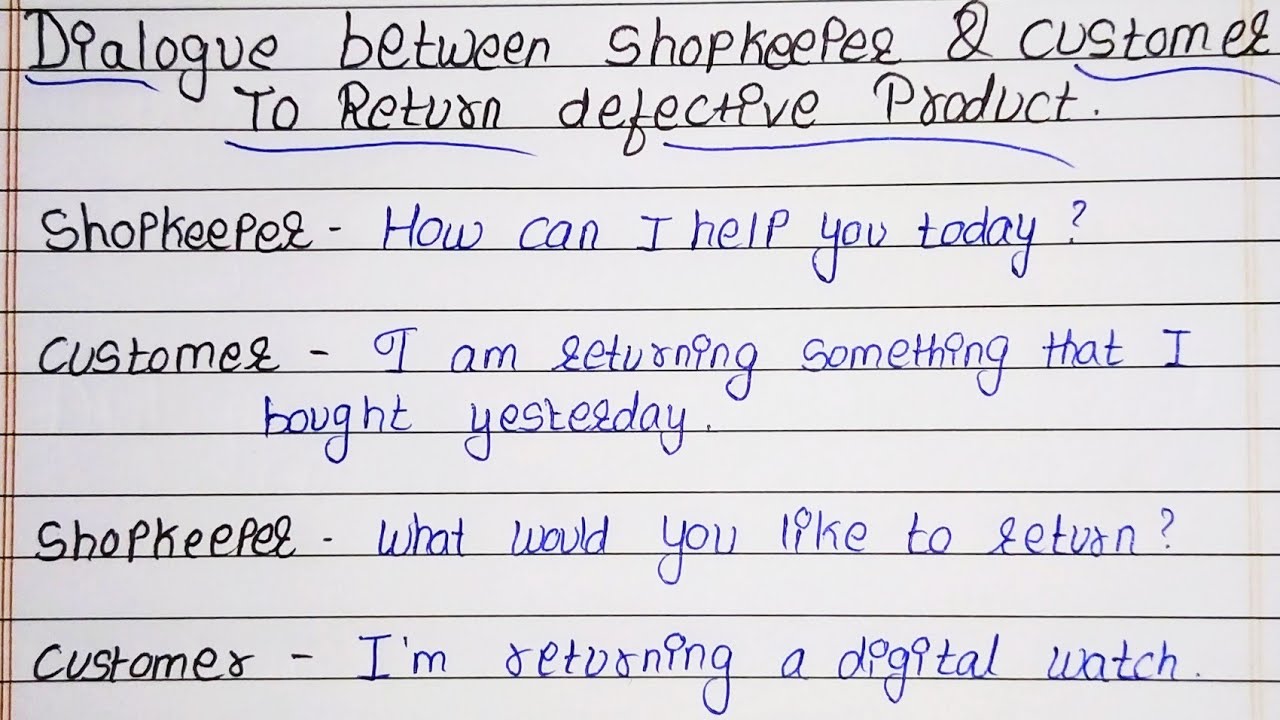 Dialogue between Shopkeeper & Customer
To Return defective Product.
Shopkeeper - How can I help you today?
Customer - I am returning something that I
bought yesterday.
Shopkeeper - What would you like to return?
Customer - I'm returning a digital watch.